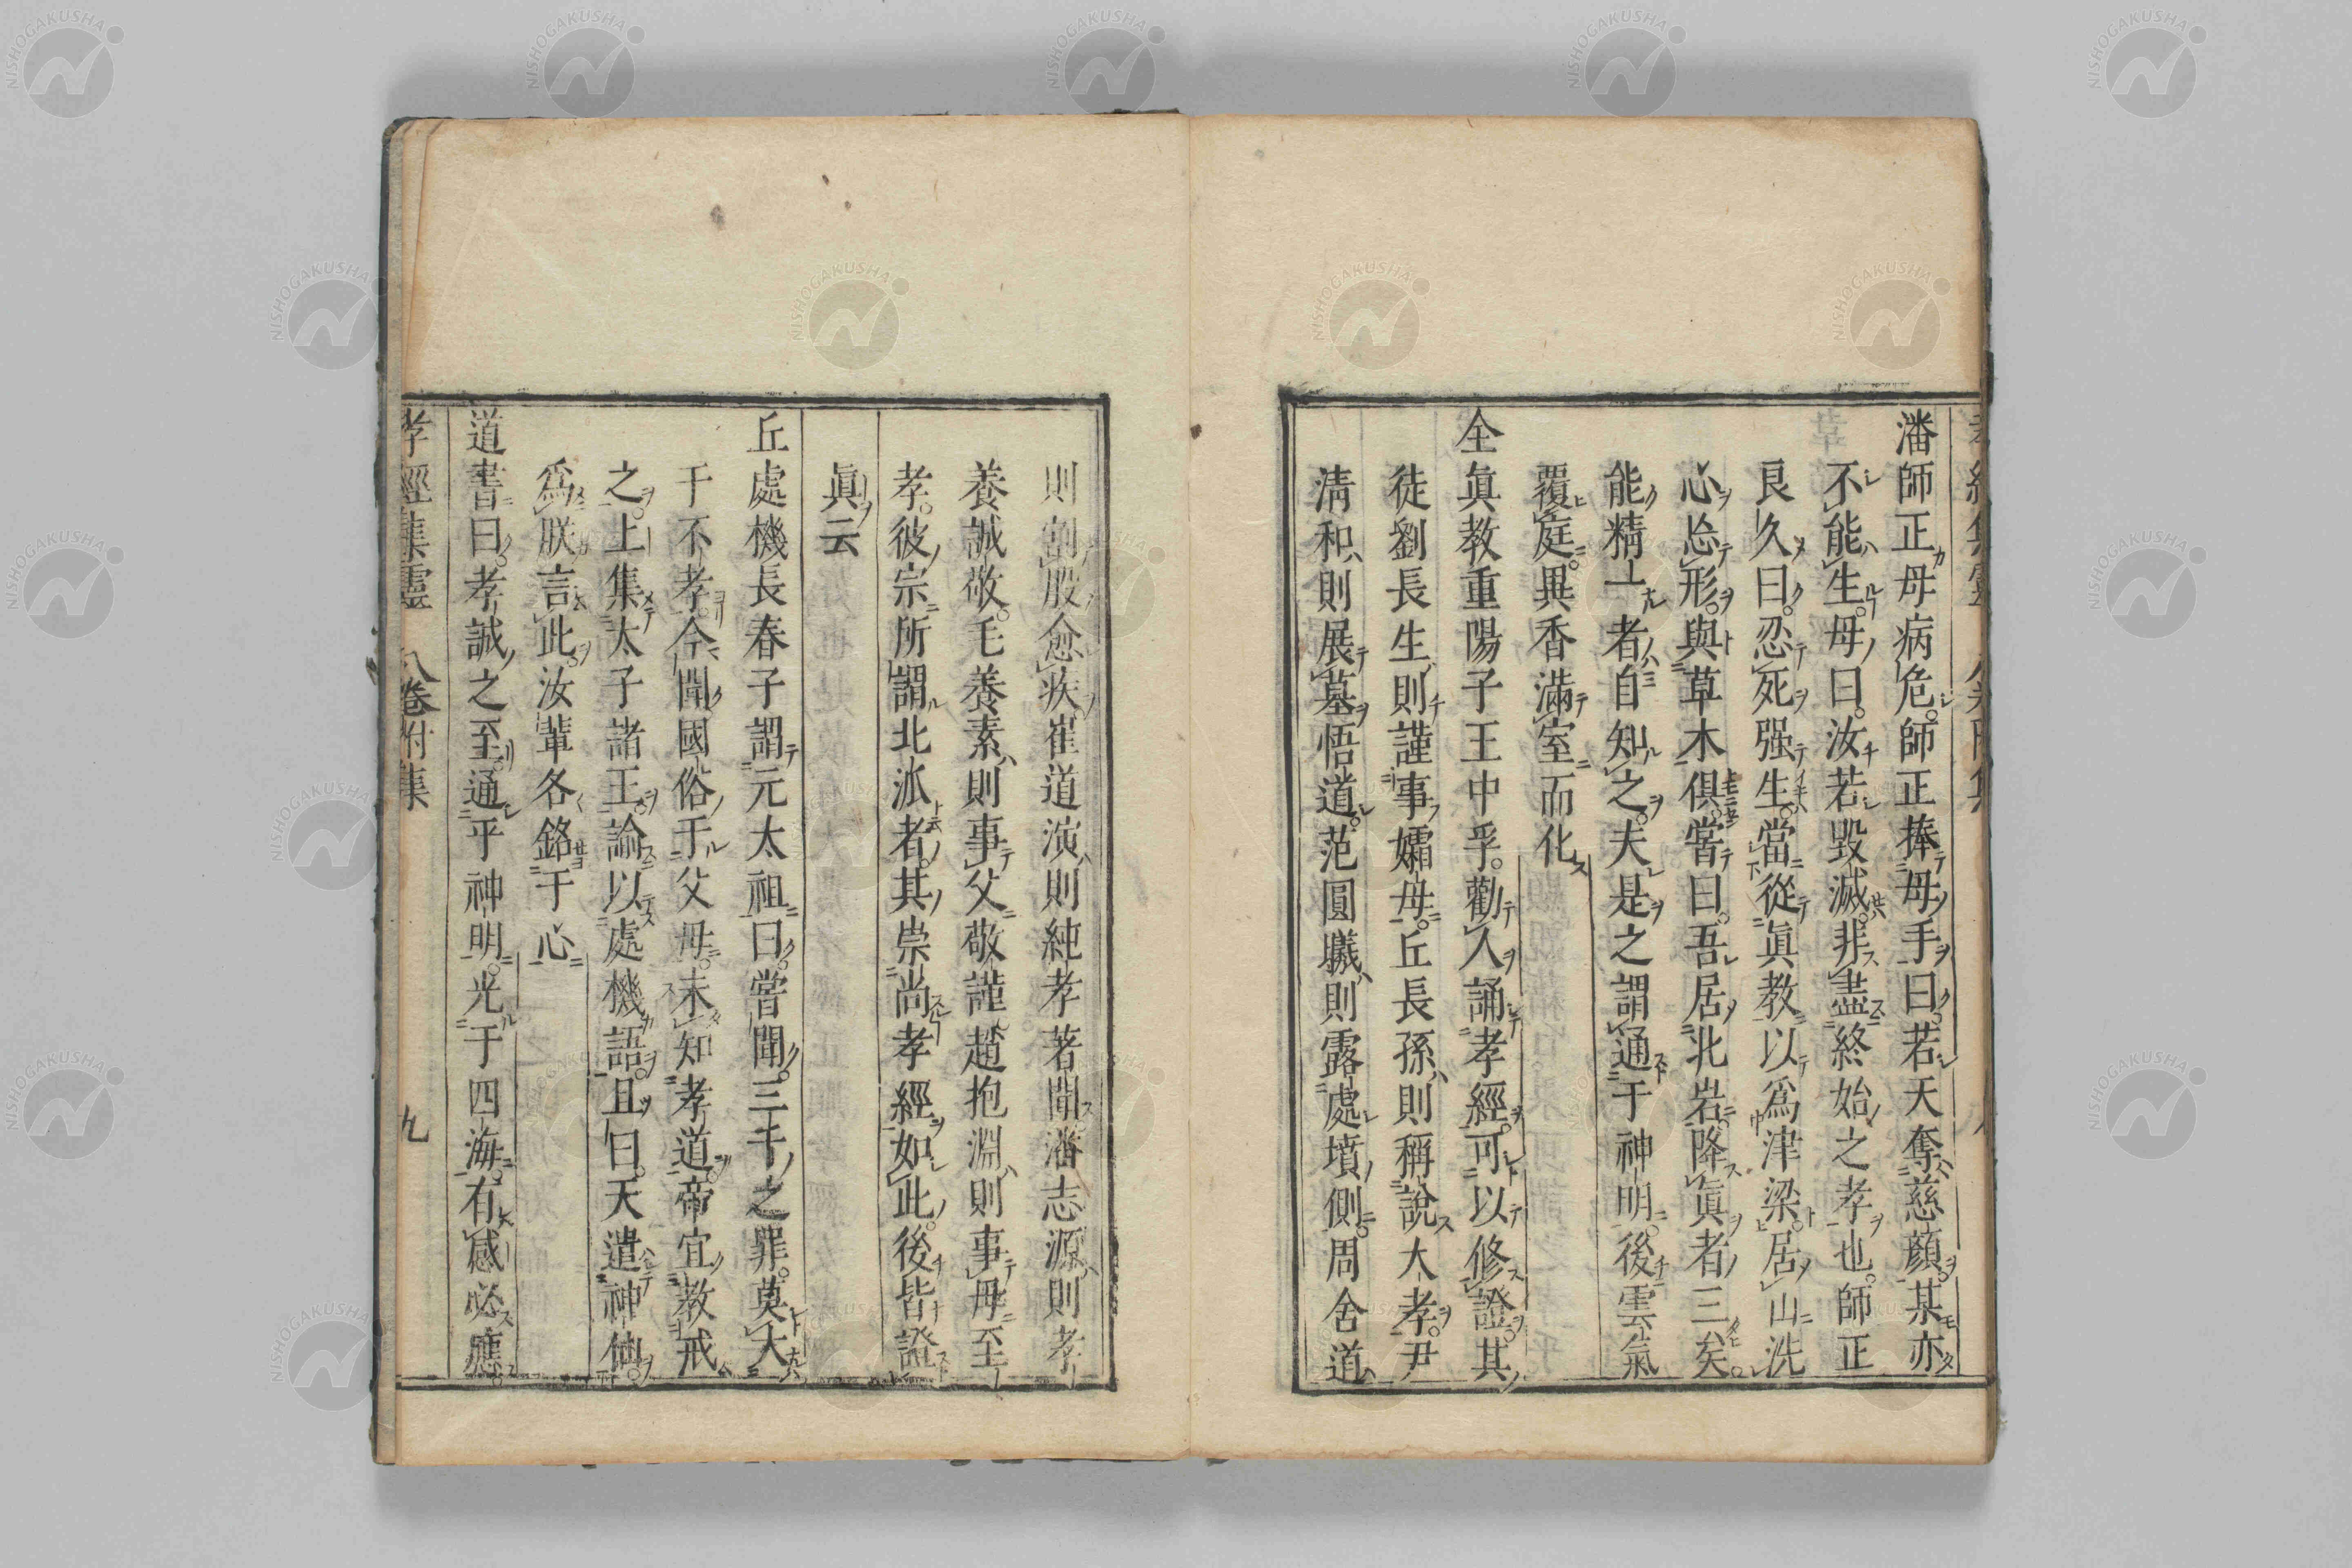 潘師正母病危師正捧母手曰若天奪慈顔某亦
不能生母曰汝若毀滅非盡終始之孝也師正
良久曰忍死强生當從眞教以爲津梁居山洗
心忘形與草木俱嘗曰吾居北岩降眞者三矣
能精上者自知之夫是之謂通于神明後雲氣
覆庭異香滿室而化
全眞教重陽子王中孚勸人誦孝經可以修證其
徒劉長生則謹事孀母丘長孫則稱說大孝尹
淸和則展墓悟道范圓曦則露處墳側周舍道
則割股愈疾崔道演則純孝著聞潘志源則孝
養誠敬毛養素則事父敬謹趙抱淵則事母至
孝彼宗所謂北派者其崇尚孝經如此後皆證
眞云
丘處機長春子謂元太祖曰嘗聞三千之罪莫大
于不孝今聞國俗于父母未知孝道帝宜教戒
之上集太子諸王諭以處機語且曰天遣神仙
爲朕言此汝輩各銘于心
道書曰孝誠之至通乎神明光于四海有感必應
孝經集靈 八卷附集 九
NISHOGAKUSHA